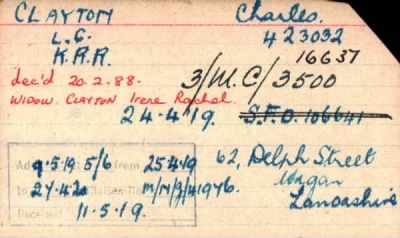 CLAYTON Charles.
L.C. 423032
K.R.R. 16637
dec'd 20.2.88. 3/M.C/3500
WIDOW. CLAYTON Irene Rachel.
24-4-19. S.F.O. 106641
9.5.19 5/6 from 25.4.19 62, Delph Street
27.4.20 M/M/g/41976. Wigan
Received 11.5.19. Lancashire